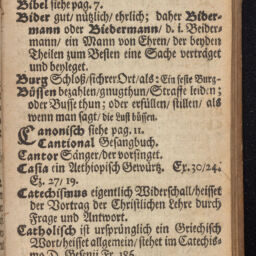 Bibel siehe pag. 7.
Bider gut/ nützlich/ ehrlich; daher Bider-
mann oder Biedermann/ d. i. Beider-
mann/ ein Mann von Ehren/ der beyden
Theilen zum Besten eine Sache verträget
und beyleget.
Burg Schloß/ sichrer Ort/ als: Ein feste Burg-
Büssen bezahlen/ gnugthun/ Straffe leiden;
oder Busse thun; oder erfüllen/ stillen/ als
wenn man sagt/ die Lust büssen.
Canonisch siehe pag. 11.
Cantional Gesangbuch.
Cantor Sänger/ der vorsinget.
Casia ein Aethiopisch Gewürtz. Ex. 30/ 24.
Ez. 27/ 19.
Catechismus eigentlich Widerschall/ heisset
der Vortrag der Christlichen Lehre durch
Frage und Antwort.
Catholisch ist ursprünglich ein Griechisch
Wort/ heisset allgemein/ stehet im Catechis-
mo D. Gesenii Fr. 186.